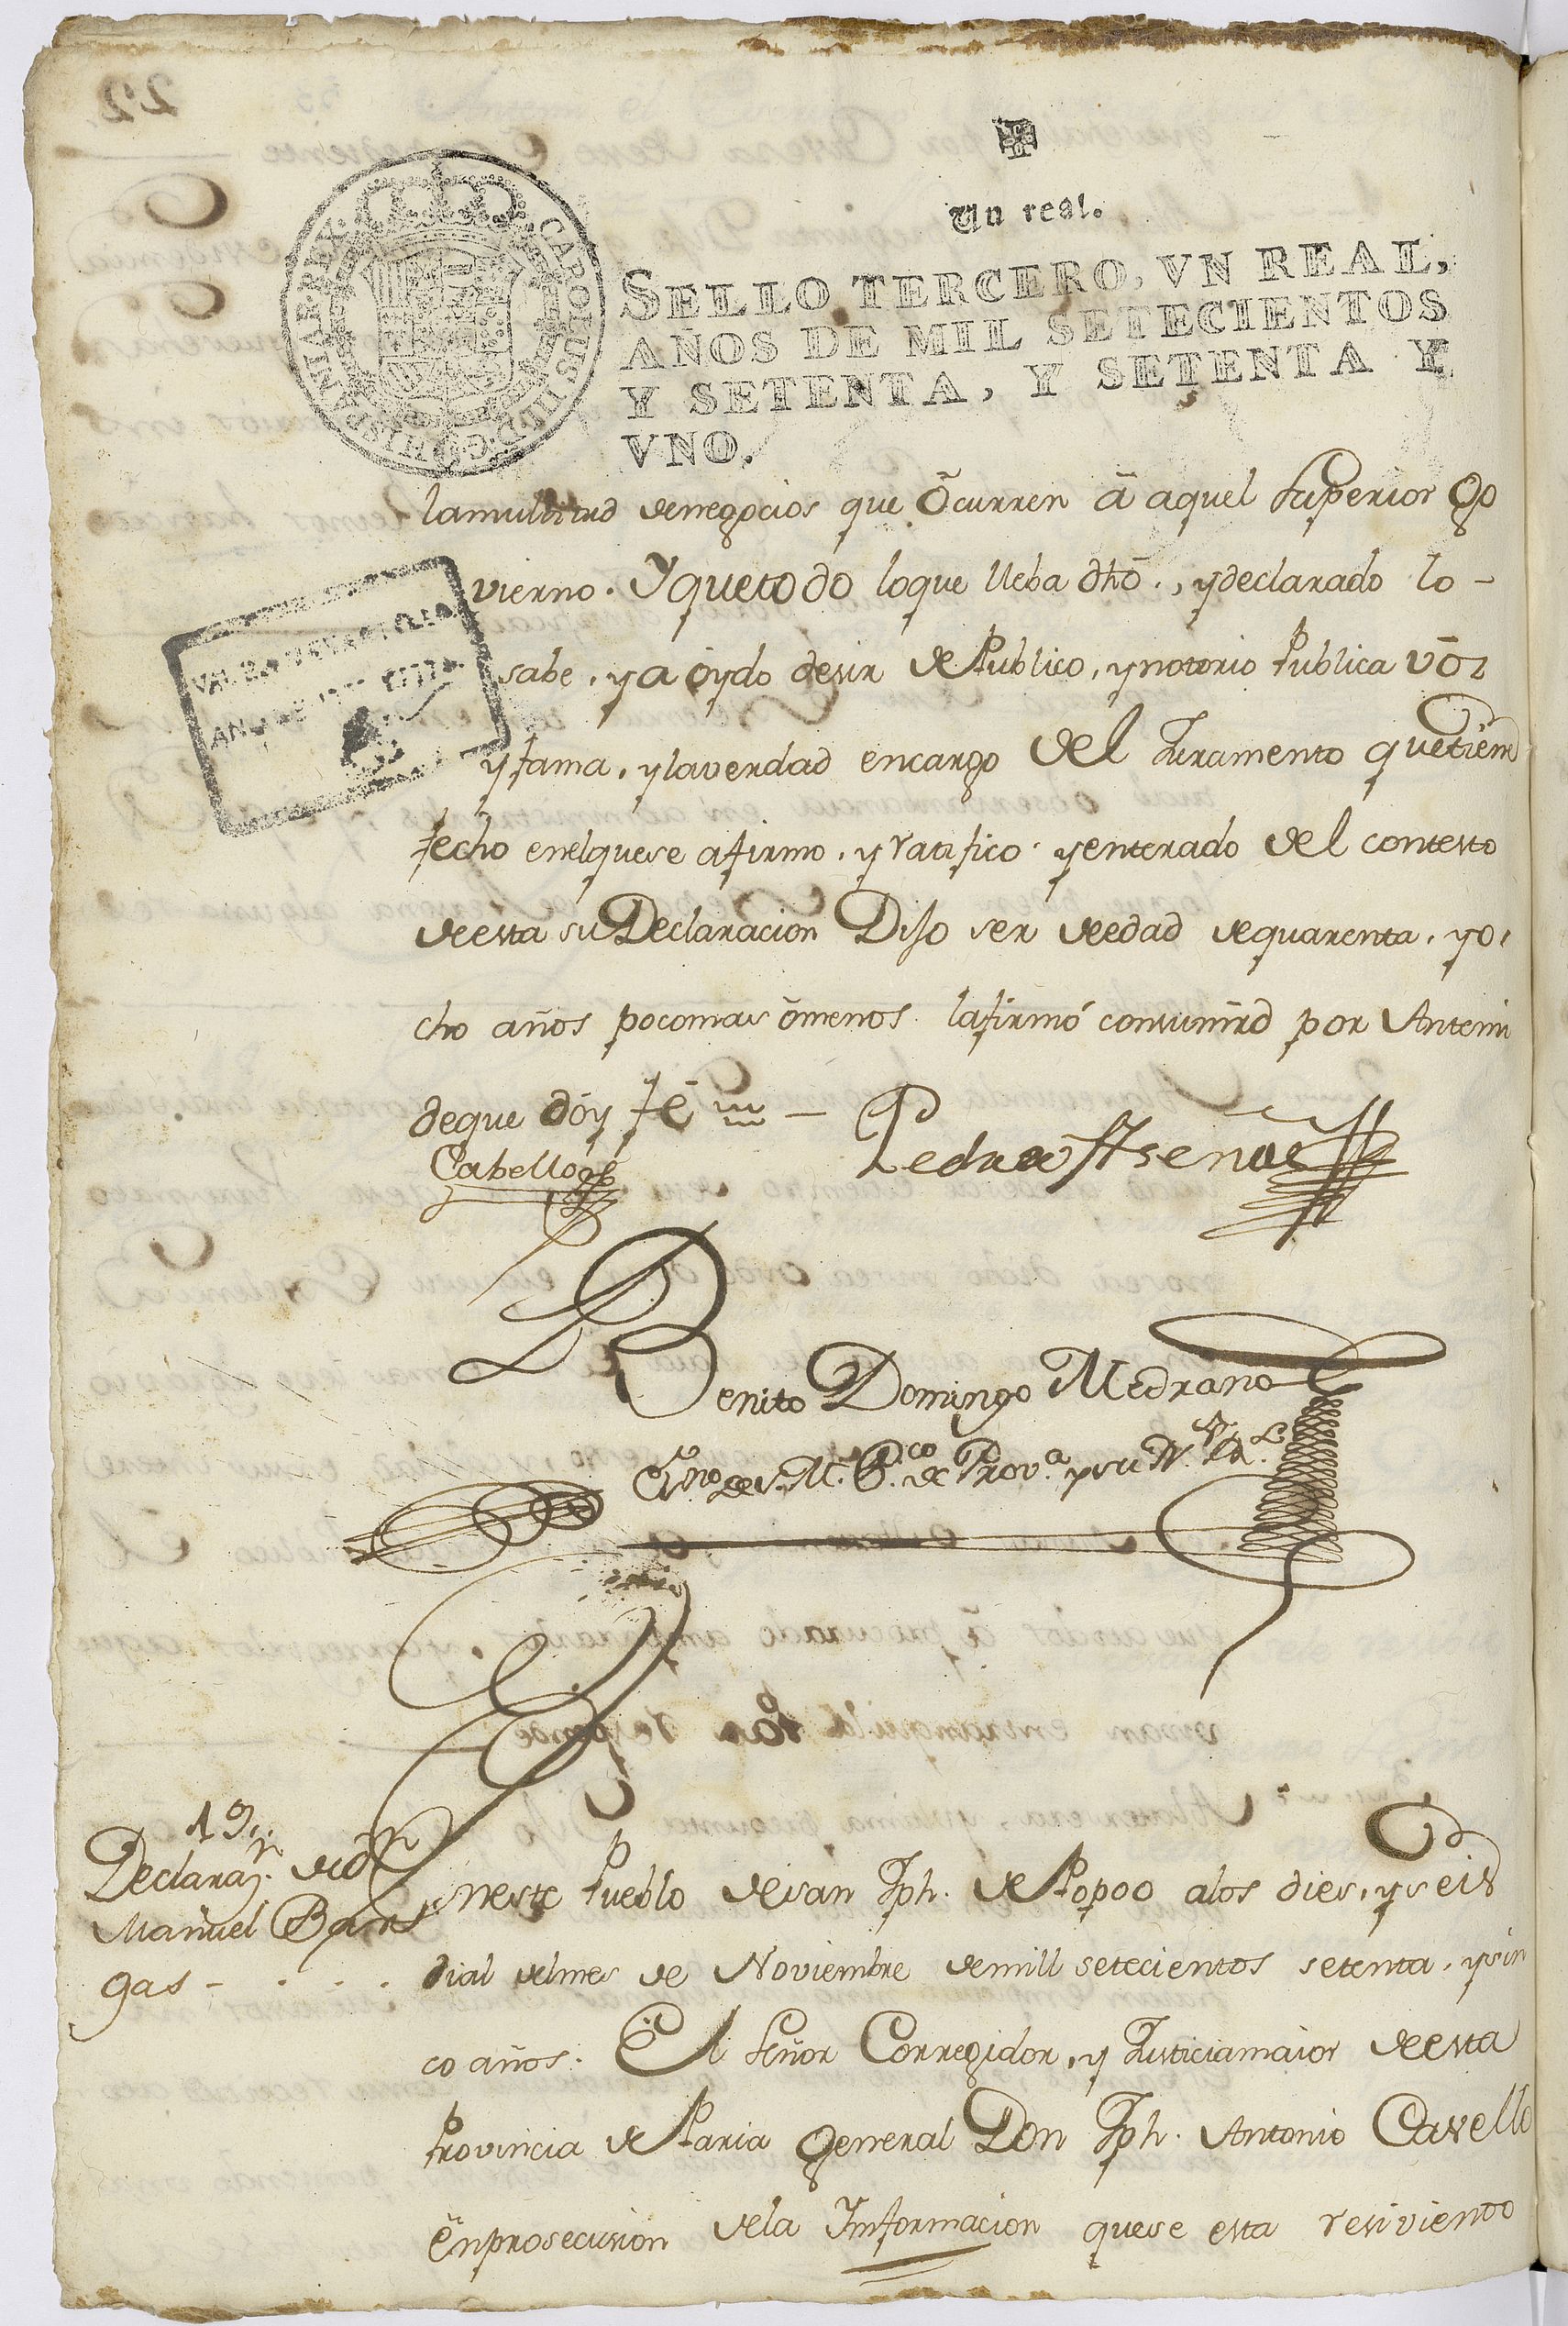 Un real.
SELLO TERCERO, VN REAL,
AÑOS DE MIL SETECIENTOS
Y SETENTA, Y SETENTA Y
VNO.
CAROLUS III D G HISPANIAR REX
lamultitud denegocios que õcurren ã aquel Superior Go
vierno. Y quetodo loque lleba dhõ., ydeclarado lo-
sabe, ya óydo desir de Publico, ynotorio Publica vóz
yfama, ylaverdad encargo del Juramento quetiene
fecho enelquese afirmo, yratifico, yenterado del contesto
deesta su Declaracion Dijo ser deedad dequarenta, yo,
cho años pocomas õmenos lafirmó consumrd por Antemi
deque dóy fé —
Cabello
Pedro Arsenas
Benito Domingo Medrano
Essno de S.M. P.co de Prov.a y su
19,,
Declaraz.n de d.n
Manuel Bar
gas - . . .
Eneste Pueblo desan Jph. de Popoo alos dies, yseis
dias delmes de Noviembre demill setecientos setenta, ysin
co años. El Señor Corregidor, y Justiciamaior deesta
Provincia de Paria General Don Jph. Antonio Cavello
Enprosecusion dela Informacion quese esta resiviendo